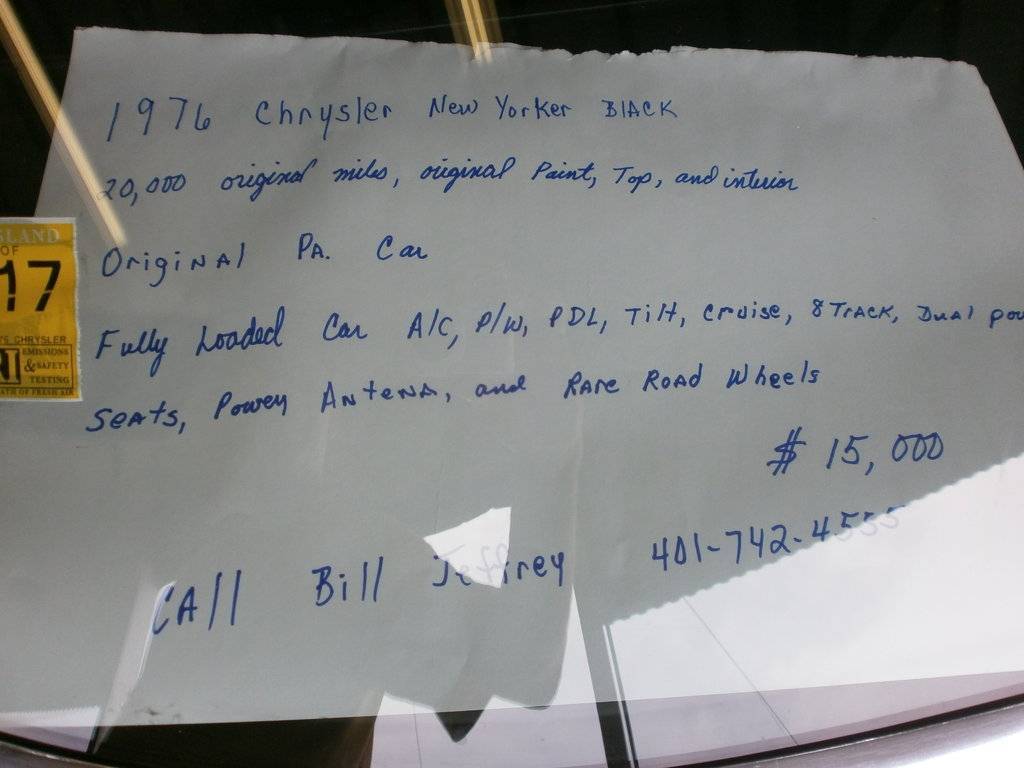 1976 Chrysler New Yorker BlACK
20,000 original miles, original Paint, Top, and interior
OrigiNAl PA. Car
Fully Loaded Car A/C, P/W, PDL, Tilt, Cruise, 8 TrACK, Dual pow
SeAts, Power ANteNA, and RARe ROAD Wheels
$ 15,000
CAll Bill Jeffrey 401-742-4555
SLAND
OF
17
76 CHRYSLER
EMISSIONS
& SAFETY
TESTING
ATH OF FRESH AIR